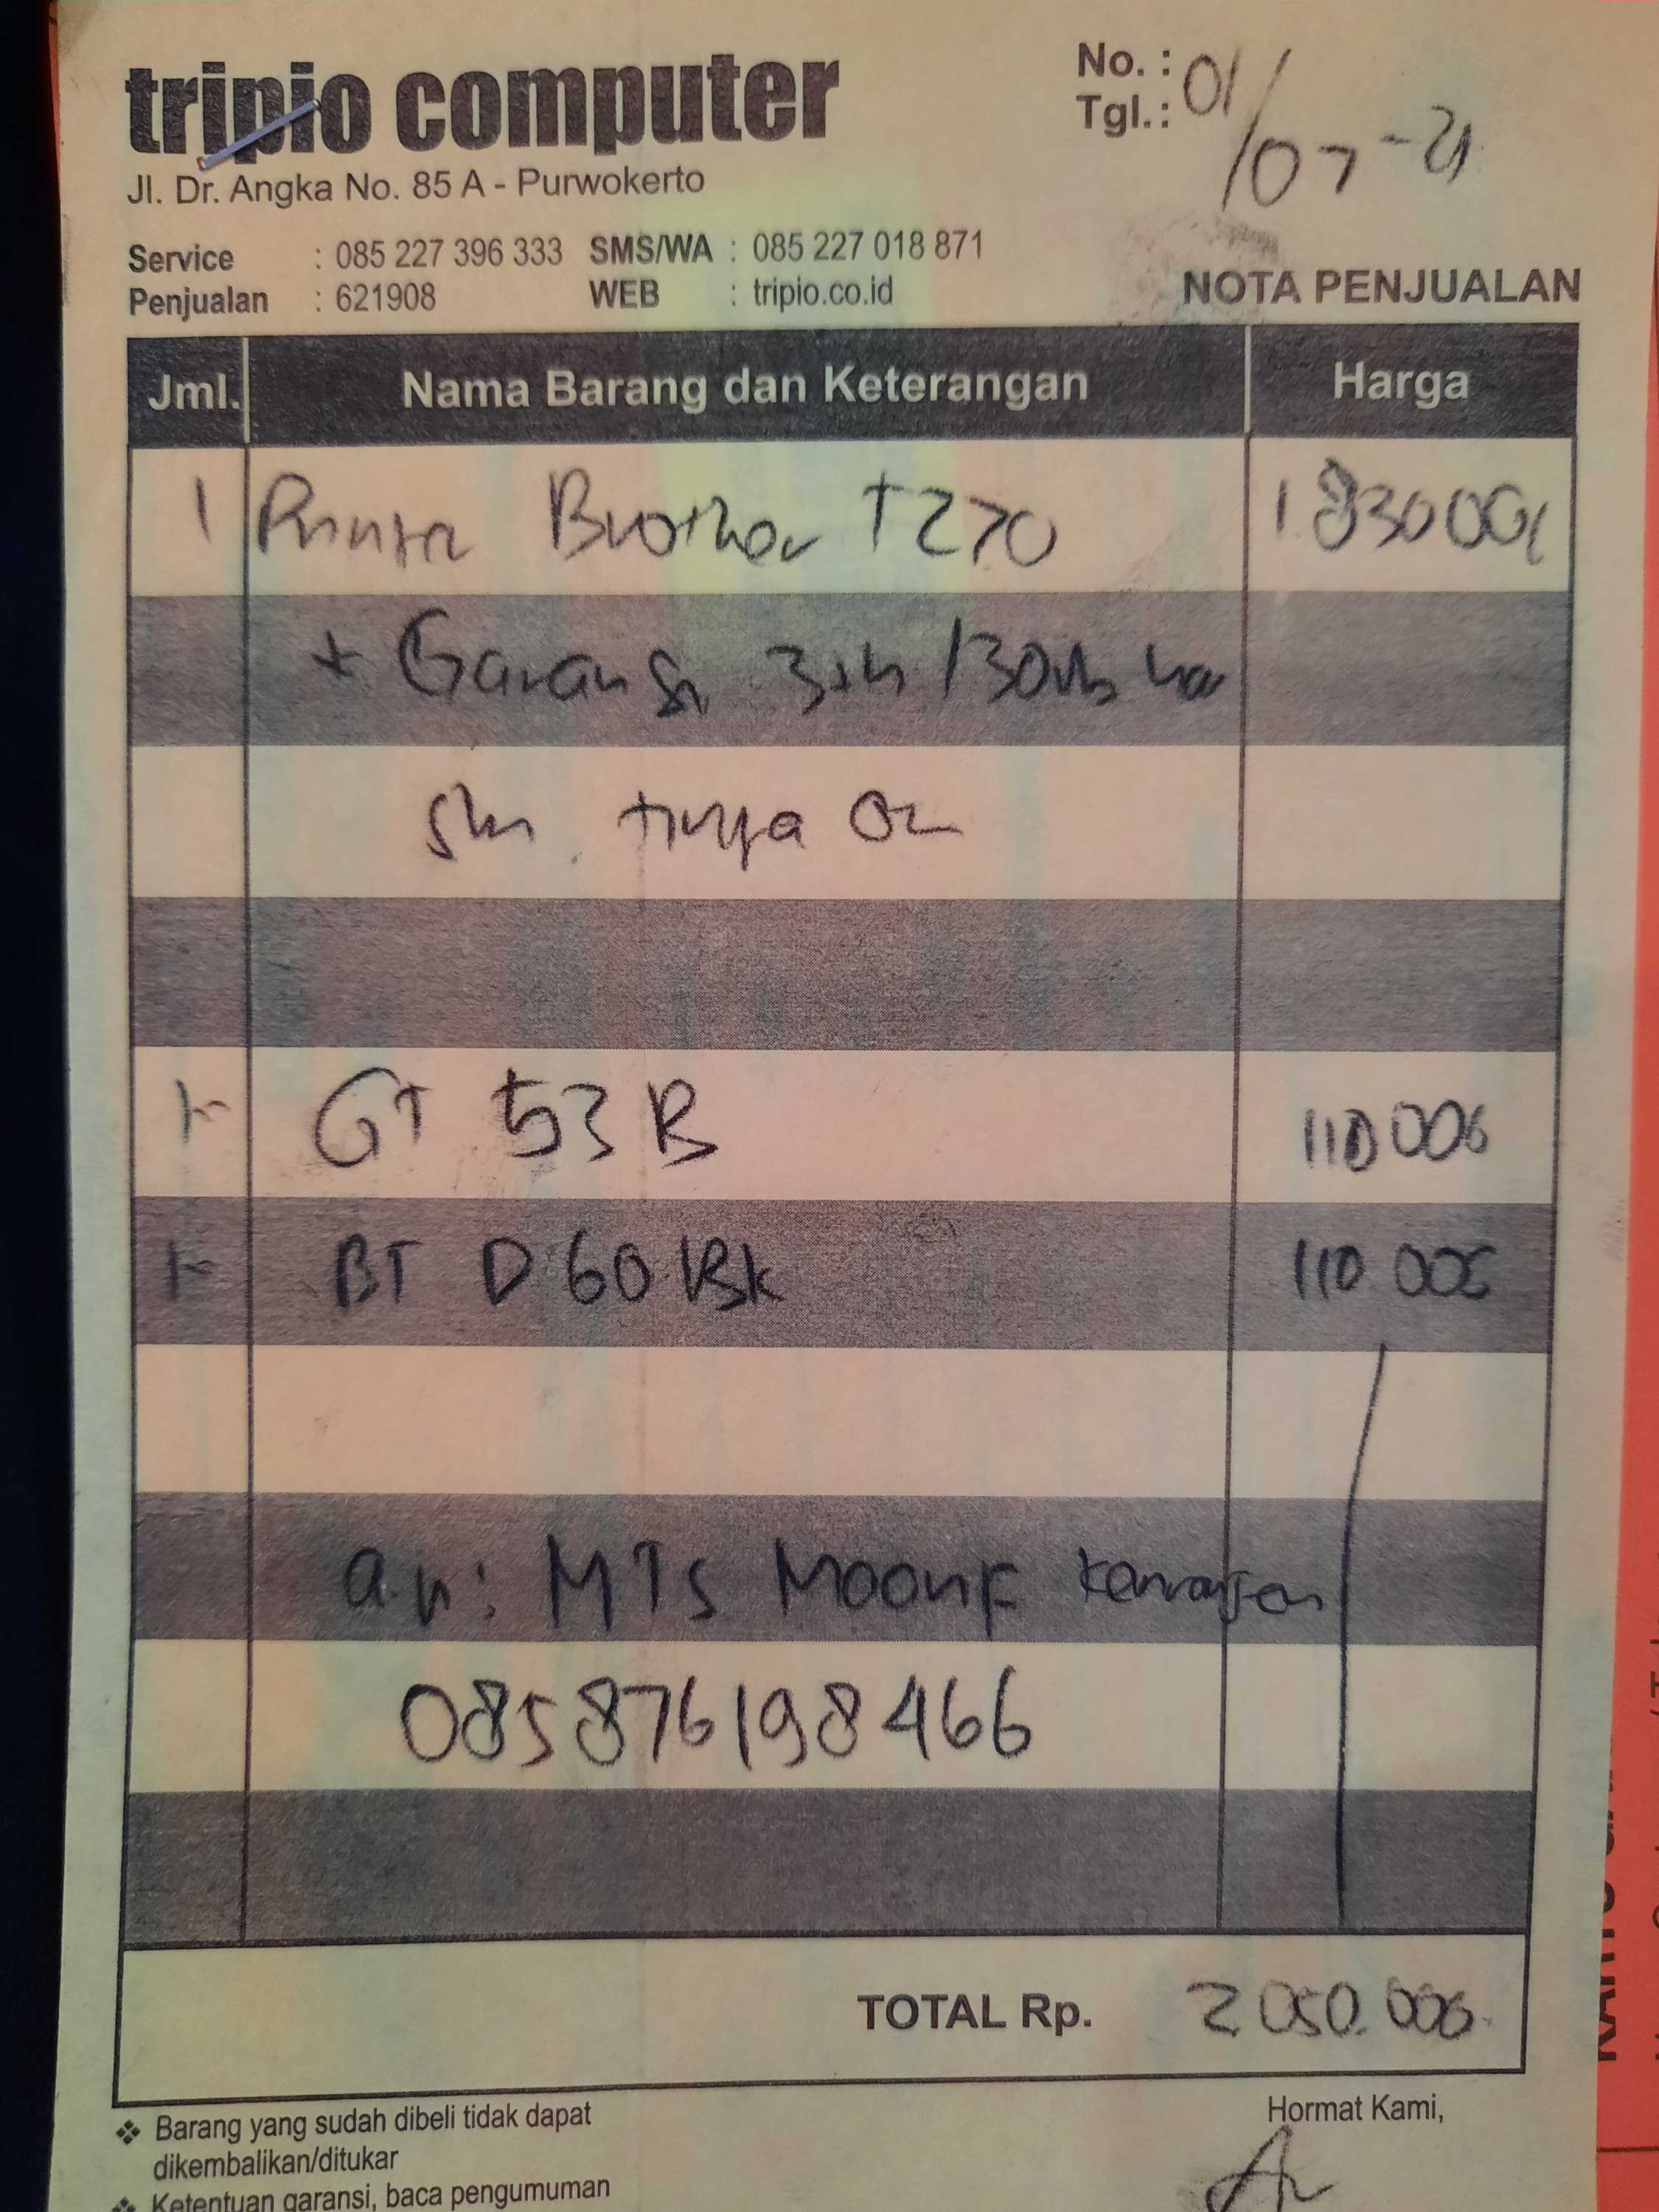 tripio computer
No. :
Tgl.: 01/07-21
Jl. Dr. Angka No. 85 A - Purwokerto
Service : 085 227 396 333 SMS/WA : 085 227 018 871
Penjualan : 621908 WEB : tripio.co.id
NOTA PENJUALAN
Jml. Nama Barang dan Keterangan Harga
1 Printer Brother T270 1.830000
* Garansi 3th /30rb
GT 53 B 110 000
BT D 60 Bk 110.000
a.n: MTs
085876198466
TOTAL Rp. 2050.000
Barang yang sudah dibeli tidak dapat
dikembalikan/ditukar
Hormat Kami,
Ketentuan garansi, baca pengumuman